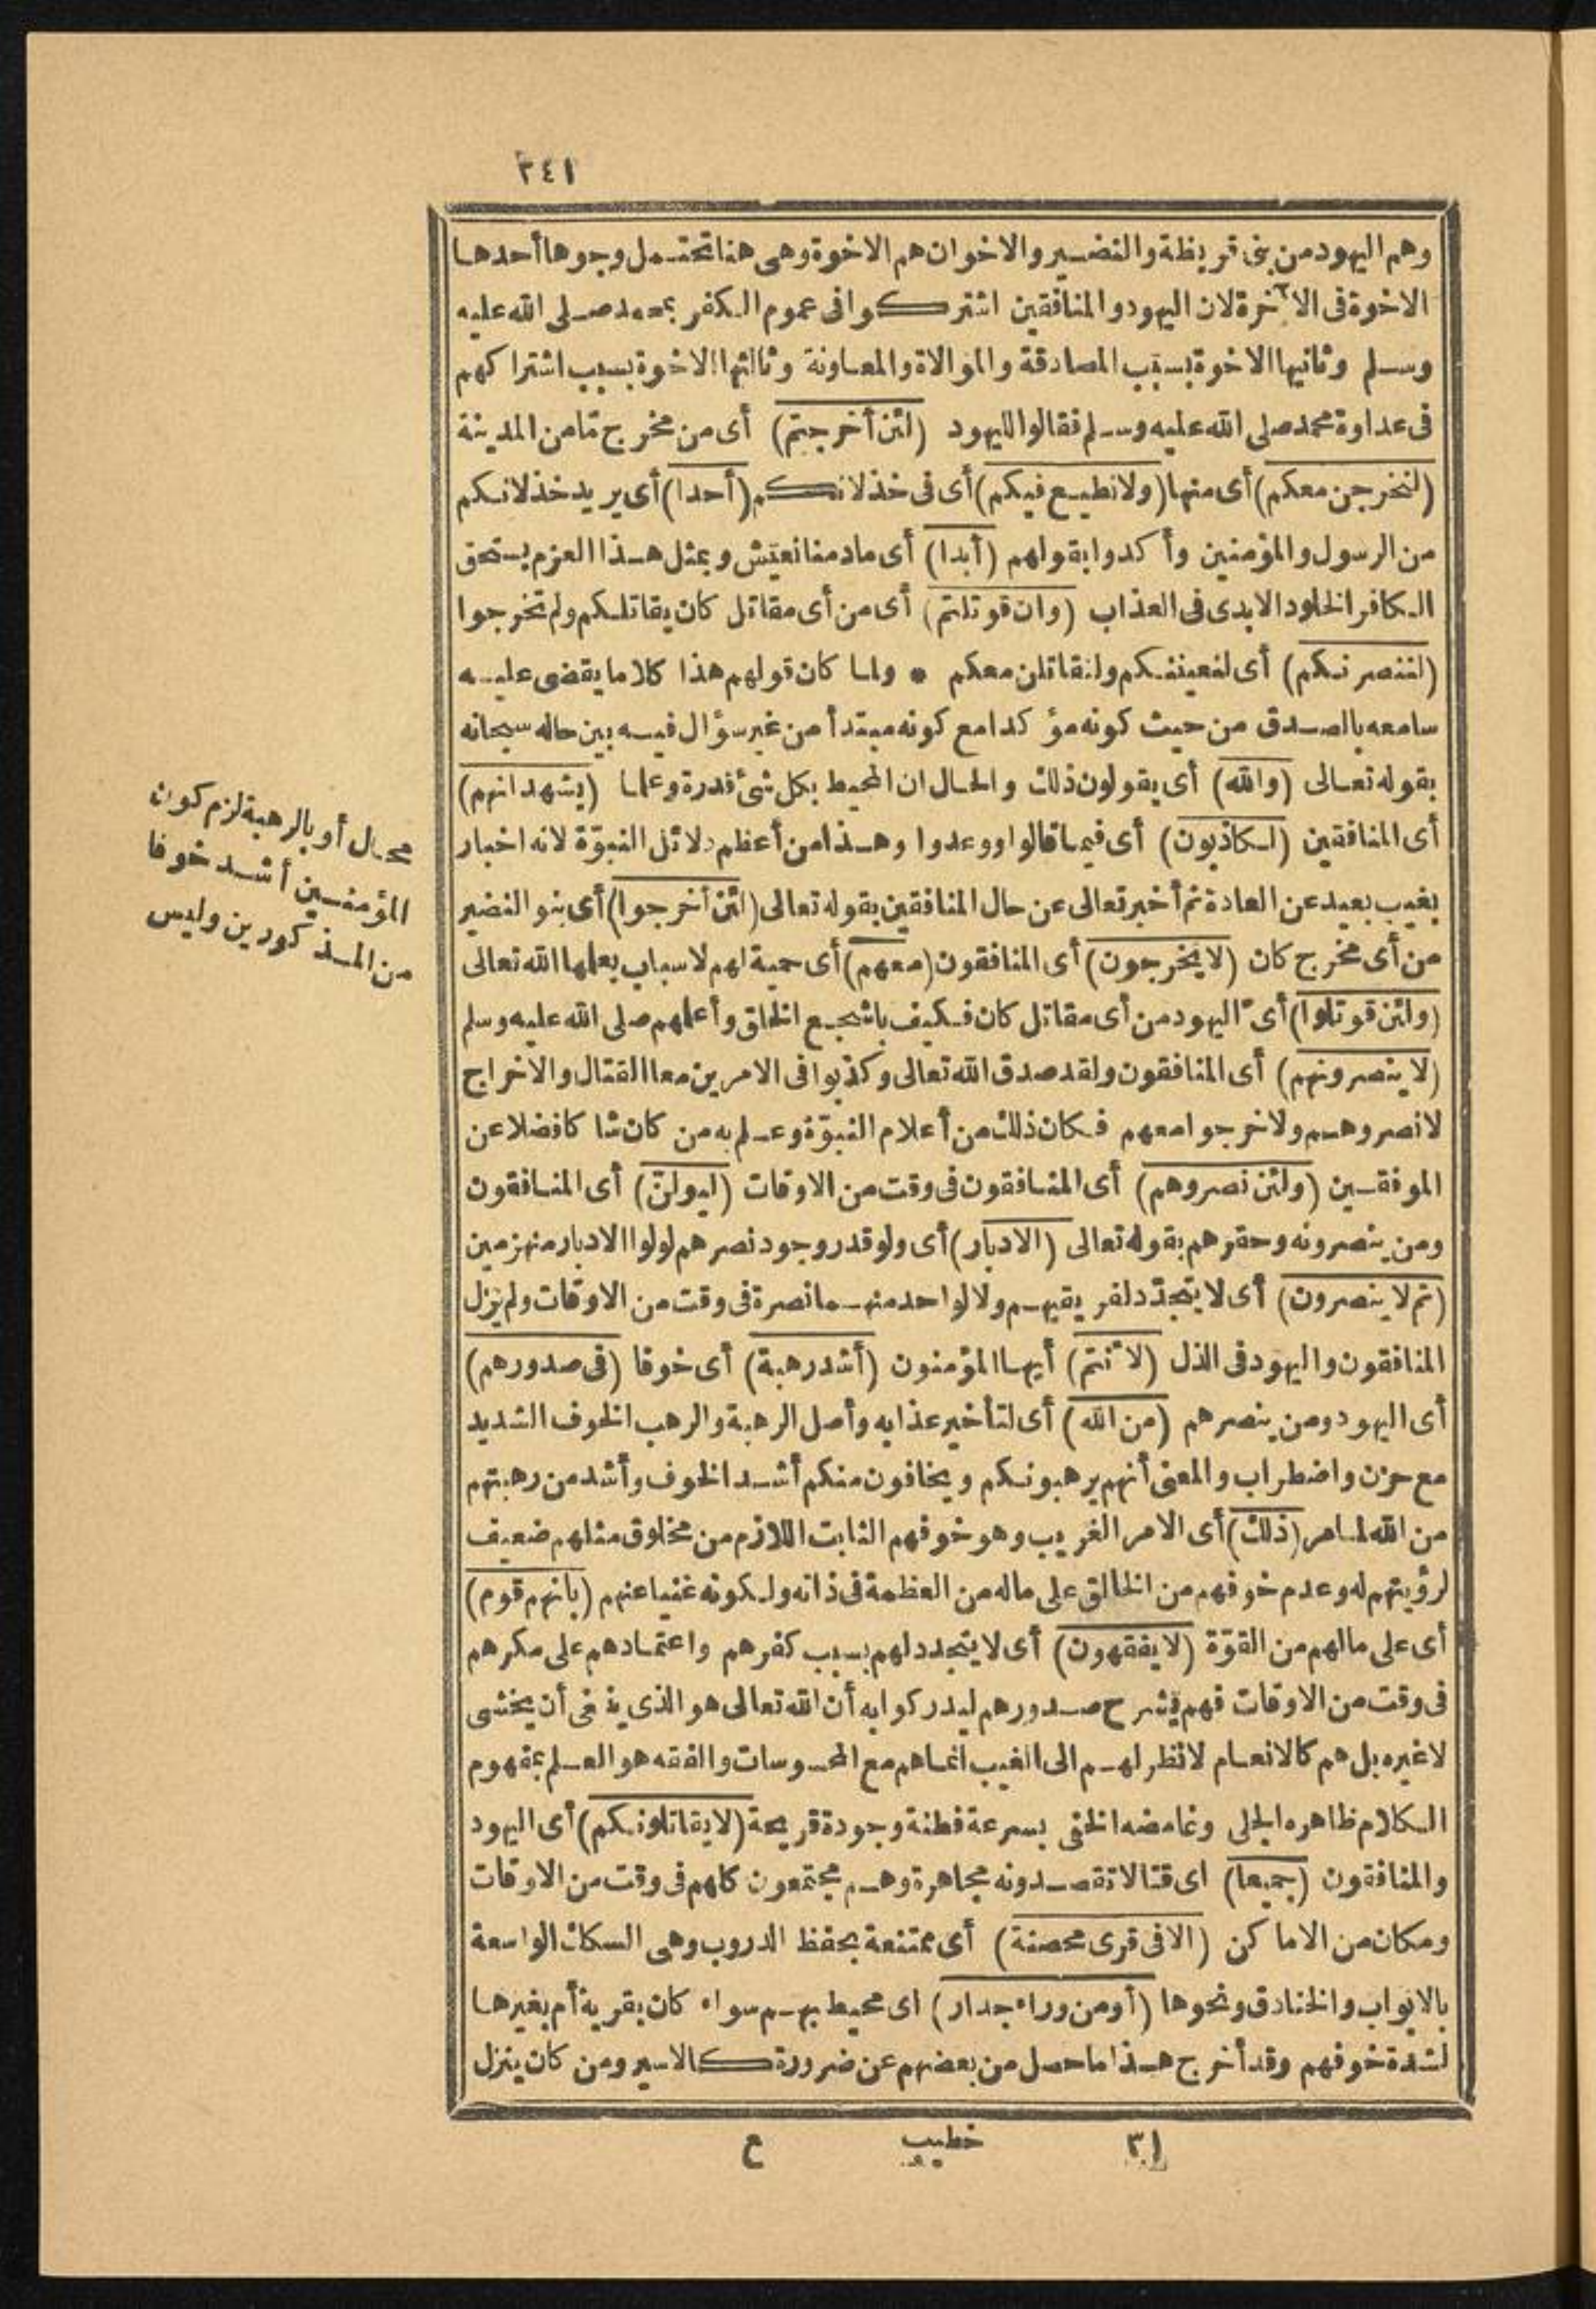 ٢٤١
وهم اليهود من بنى قريظة والنضير والاخوان هم الاخوة وهى هنا تحتمل وجوها أحدها
الاخوة فى الآخرة لان اليهود والمنافقين اشتركوا فى عموم الكفر بمحمد صلى الله عليه
وسلم وثانيها الاخوة بسبب المصادقة والموالاة والمعاونة وثالثها الاخوة بسبب اشتراكهم
فى عداوة محمد صلى الله عليه وسلم فقالوا لليهود (لئن أخرجتم) أى من مخرج تا من المدينة
(لنخرجن معكم) أى منها (ولا نطيع فيكم) أى فى خذلانكم (أحدا) أى يريد خذلانكم
من الرسول والمؤمنين وأكدوا بقولهم (أبدا) أى ما دمنا نعيش وبمثل هذا العزم يستحق
الكافر الخلود الابدى فى العذاب (وان قوتلتم) أى من أى مقاتل كان يقاتلكم ولم تخرجوا
(لننصرنكم) أى لنعيننكم ولنقاتلن معكم * ولما كان قولهم هذا كلاما يقضى عليه
سامعه بالصدق من حيث كونه مؤكدا مع كونه مبتدأ من غير سؤال فيه بين حاله سبحانه
بقوله تعالى (والله) أى يقولون ذلك والحال ان المحيط بكل شئ قدرة وعلما (يشهد انهم)
أى المنافقين (لكاذبون) أى فيما قالوا ووعدوا وهذا من أعظم دلائل النبوّة لانه اخبار
بغيب بعيد عن العادة ثم أخبر تعالى عن حال المنافقين بقوله تعالى (لئن أخرجوا) أى بنو النضير
من أى مخرج كان (لا يخرجون) أى المنافقون (معهم) أى حمية لهم لاسباب يعلمها الله تعالى
(ولئن قوتلوا) أى اليهود من أى مقاتل كان فكيف باشجع الخلق وأعلمهم صلى الله عليه وسلم
(لا ينصرونهم) أى المنافقون ولقد صدق الله تعالى وكذبوا فى الامرين معا القتال والاخراج
لا نصروهم ولا خرجوا معهم فكان ذلك من أعلام النبوّة وعلم به من كان شاكا فضلا عن
الموفقين (ولئن نصروهم) أى المنافقون فى وقت من الاوقات (ليولنّ) أى المنافقون
ومن ينصرونه وحقرهم بقوله تعالى (الادبار) أى ولو قدر وجود نصرهم لولوا الادبار منهزمين
(ثم لا ينصرون) أى لا يتجدّد لفريقيهم ولا لواحد منهما نصرة فى وقت من الاوقات ولم يزل
المنافقون واليهود فى الذل (لأنتم) أيها المؤمنون (أشد رهبة) أى خوفا (فى صدورهم)
أى اليهود ومن ينصرهم (من الله) أى لتأخير عذابه وأصل الرهبة والرهب الخوف الشديد
مع حزن واضطراب والمعنى أنهم يرهبونكم ويخافون منكم أشد الخوف وأشد من رهبتهم
من الله لما مر (ذلك) أى الامر الغريب وهو خوفهم الثابت اللازم من مخلوق مثلهم ضعيف
لرؤيتهم له وعدم خوفهم من الخالق على ماله من العظمة فى ذاته ولكونه غنيا عنهم (بأنهم قوم)
أى على مالهم من القوّة (لا يفقهون) أى لا يتجدد لهم بسبب كفرهم واعتمادهم على مكرهم
فى وقت من الاوقات فهم يشرح صدورهم ليدركوا به أن الله تعالى هو الذى ينبغى أن يخشى
لا غيره بل هم كالانعام لا نظر لهم الى الغيب انما هم مع المحسوسات والفقه هو العلم بمفهوم
الكلام ظاهره الجلى وغامضه الخفى بسرعة فطنة وجودة قريحة (لا يقاتلونكم) أى اليهود
والمنافقون (جميعا) اى قتالا تقصدونه مجاهرة وهم مجتمعون كلهم فى وقت من الاوقات
ومكان من الاماكن (الا فى قرى محصنة) أى ممتنعة بحفظ الدروب وهى السكك الواسعة
بالابواب والخنادق ونحوها (أو من وراء جدار) اى محيط بهم سواء كان بقرية أم بغيرها
لشدة خوفهم وقد أخرج هذا ما حصل من بعضهم عن ضرورة كالاسير ومن كان ينزل
محال أو بالرهبة لزم كون
المؤمنين أشد خوفا
من المذكورين وليس
٣١
خطيب
ع